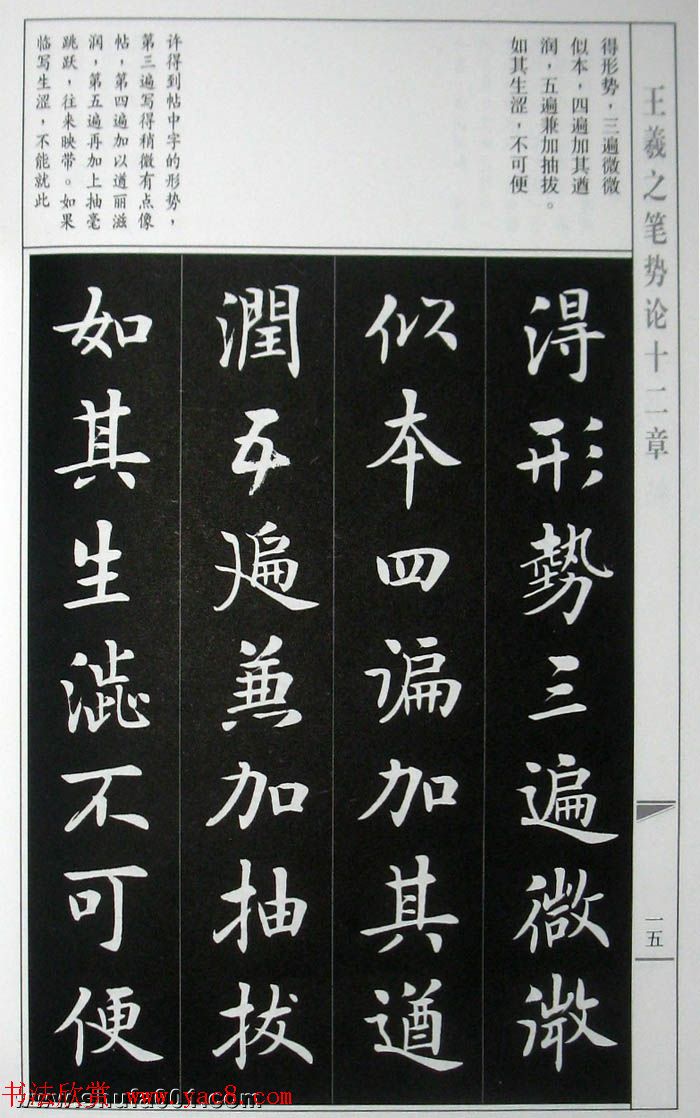 王羲之笔势论十二章
一五
得形势，三遍微微
似本，四遍加其遒
润，五遍兼加抽拔。
如其生涩，不可便
许得到帖中字的形势，
第三遍写得稍微有点像
帖，第四遍加以遒丽滋
润，第五遍再加上抽毫
跳跃，往来映带。如果
临写生涩，不能就此
得形勢三遍微微
似本四遍加其遒
潤五遍兼加抽拔
如其生澁不可便
书法欣赏 www.yac8.com
www.shufa001.com